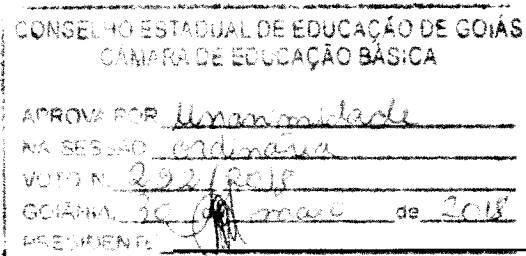 CONSELHO ESTADUAL DE EDUCAÇÃO DE GOIÁS
CÂMARA DE EDUCAÇÃO BÁSICA
APROVA POR Unanimidade
NA SESSÃO ordinária
VOTO N. 292/2018
GOIÂNIA, 30 de maio de 2018
PRESIDENTE